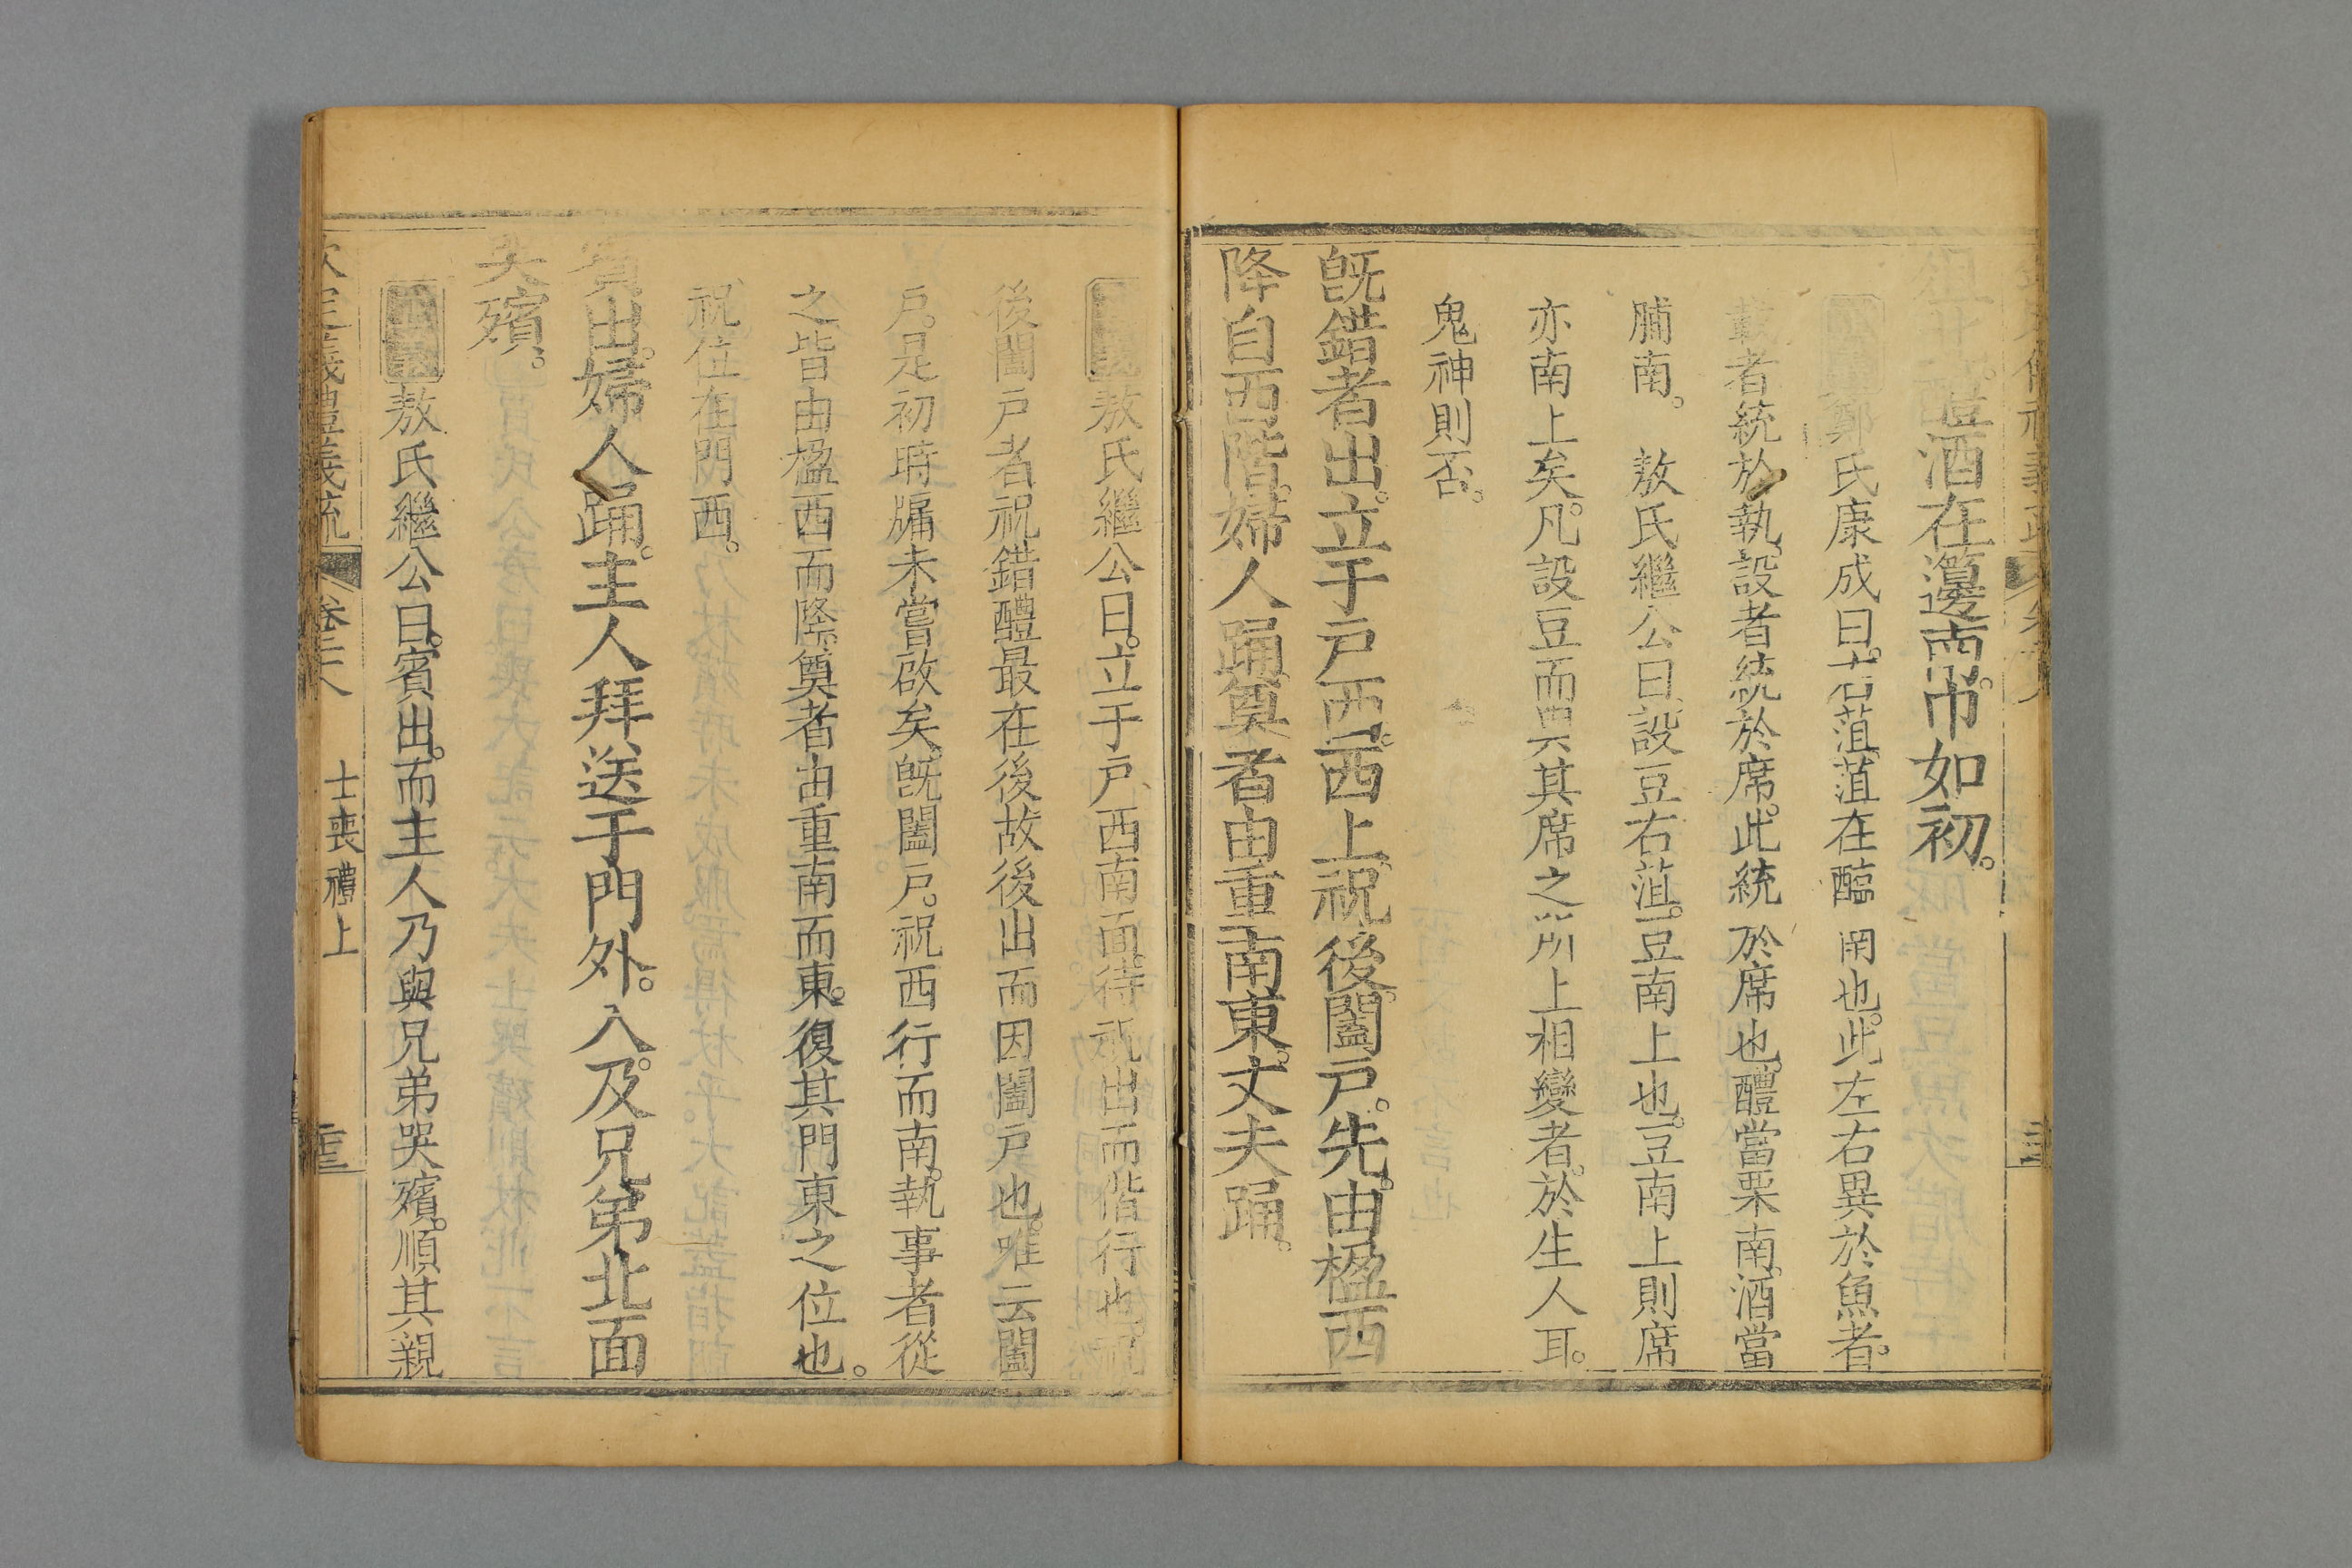 醴酒在籩南。巾如初。
鄭氏康成曰。右菹。菹在醢南也。此左右異於魚者。
載者統於執。設者統於席。此統於席也。醴當栗南。酒當
脯南。 敖氏繼公曰。設豆右菹。豆南上也。豆南上則席
亦南上矣。凡設豆而與其席之所上相變者。於生人耳。
鬼神則否。
既錯者出。立于戶西。西上。祝後。闔戶。先。由楹西
降自西階。婦人踊。奠者由重南東。丈夫踊。
敖氏繼公曰。立于戶西南面。待祝出而偕行也。祝
後闔戶者。祝錯醴最在後。故後出而因闔戶也。唯云闔
戶。是初時牖未嘗啟矣。既闔戶。祝西行而南。執事者從
之。皆由楹西而降。奠者由重南而東。復其門東之位也。
祝位在門西。
賓出。婦人踊。主人拜送于門外。入。及兄弟北面
哭殯。
敖氏繼公曰。賓出。而主人乃與兄弟哭殯。順其親
欽定儀禮義疏 卷二十八 士喪禮上